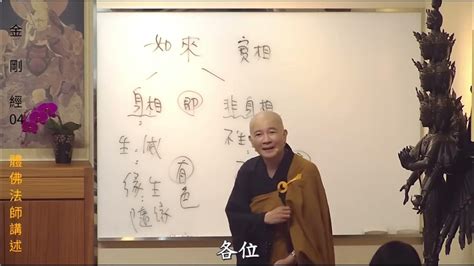 金剛經
04
體佛法師講述
如來 實相
身相 即 非身相
生滅 不生
緣生 有色
隨緣
各位